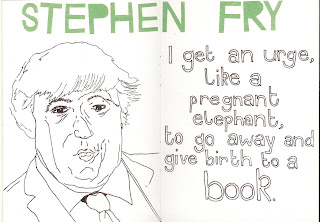 STEPHEN FRY
I get an urge,
like a
pregnant
elephant,
to go away and
give birth to a
book.